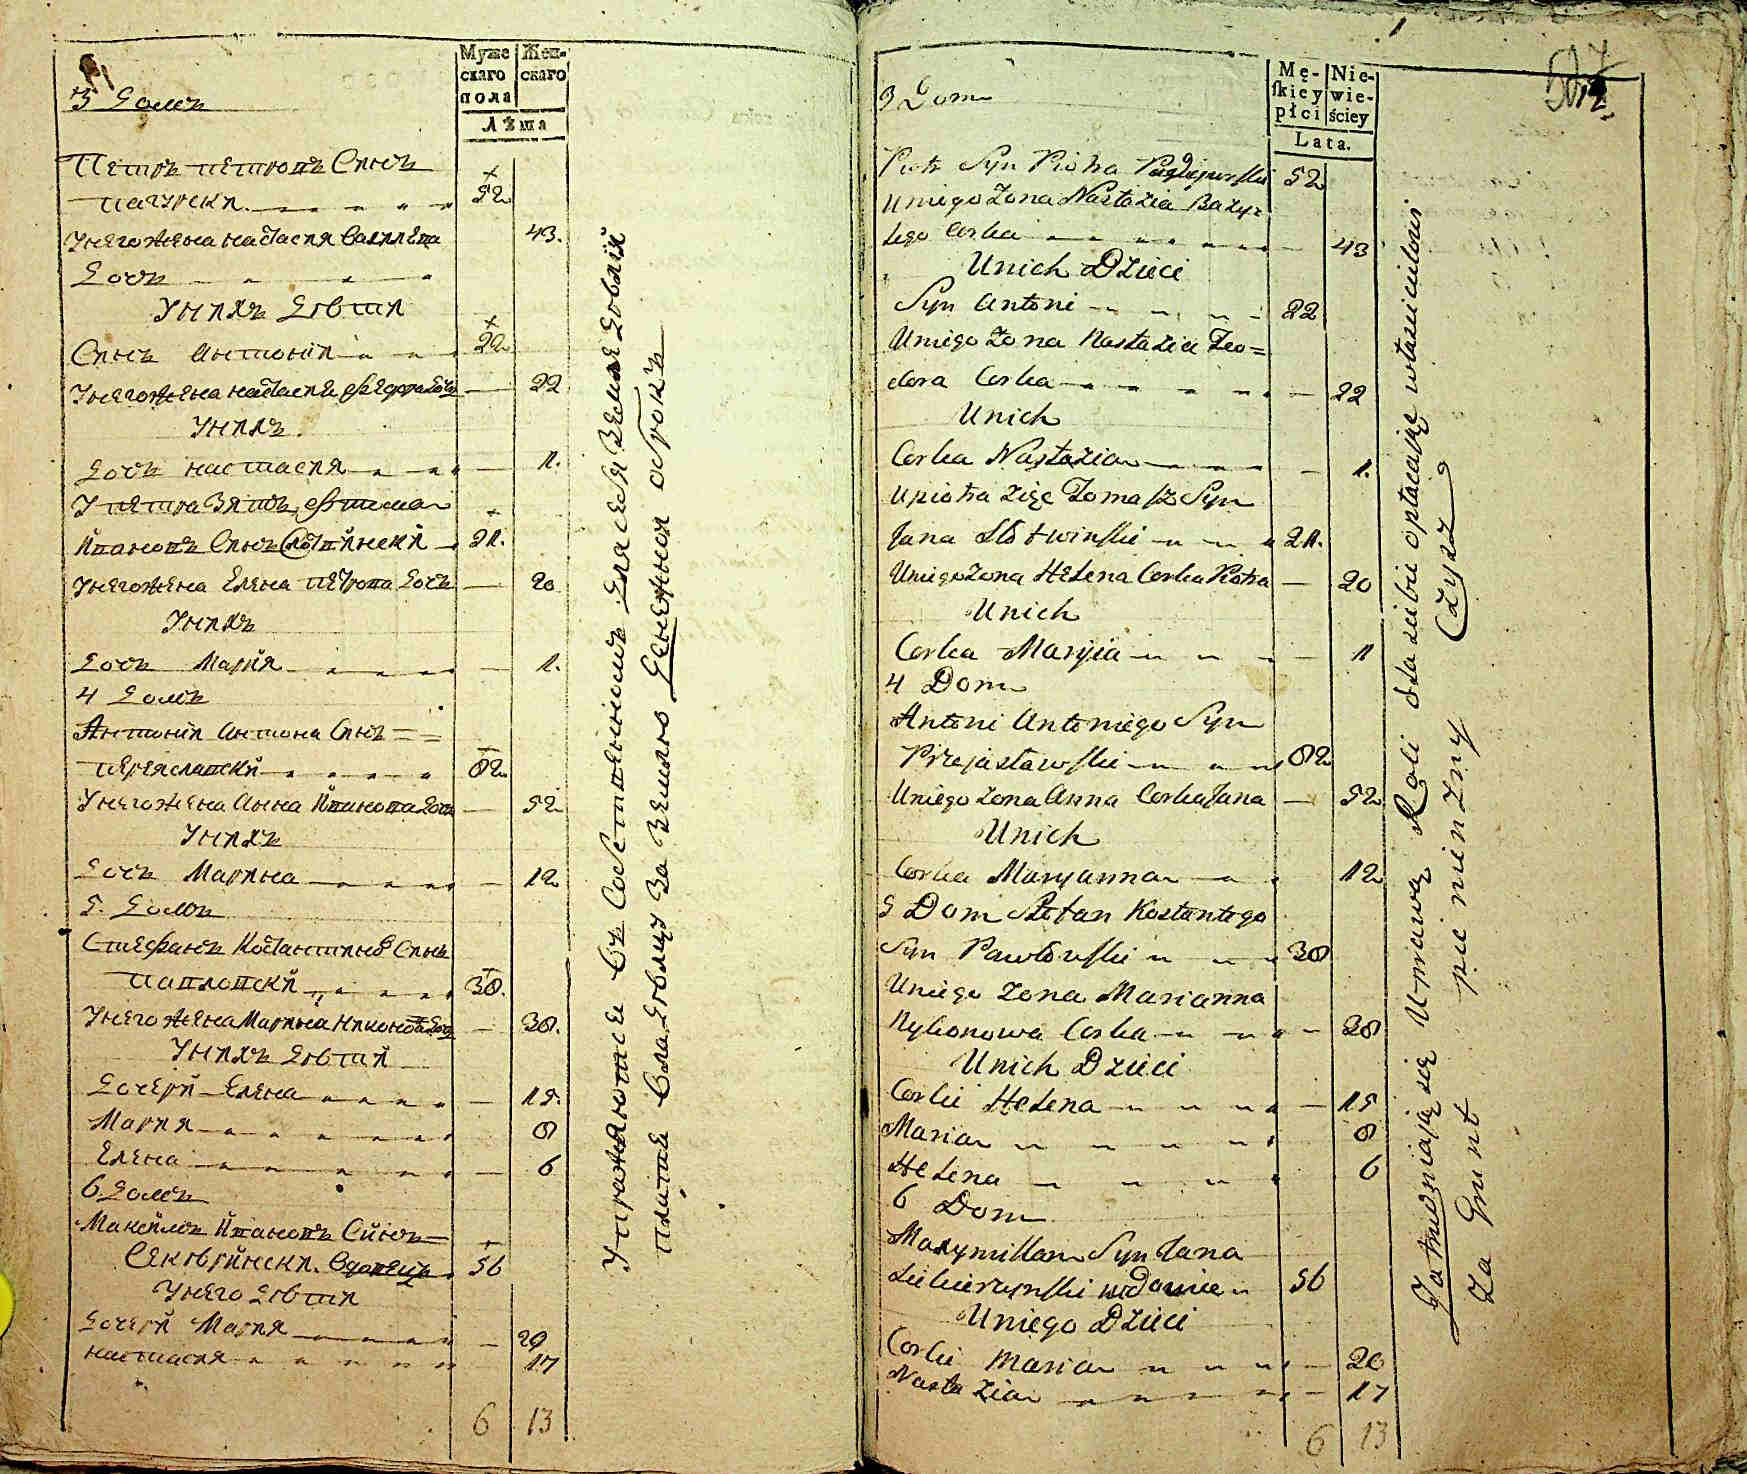 Муже
скаго
пола
Жен-
скаго
Лѣта
3 Домъ
Петръ петровъ Сынъ
52
Унего жена настасия Василева
43.
Дочь
Унихъ Дѣти
Сынъ Антоній 22
Унего жена настасия федора Дочь 22
Унихъ
Дочь настасия 1.
У петра Зять, фтома
Ивановъ Сынъ Слотвинскй 21.
Унего жена Елена петрова Дочь 20
Унихъ
Дочь Мария 1.
4 Домъ
Антоній Антона Сынъ =
переяславскй 82
Унего жена Анна Иванова Дочь 52
Унихъ
Дочь Марьна 12
5. Домъ
Стефанъ Костантинов Сынъ
павловскй 38.
Унего жена Марьна 38.
Унихъ Дѣтий
Дочери Елена 15.
Мария 8
Елена 6
6 Домъ
Ивановъ Сынъ
Вдовецъ 56
Унего Дѣти
Дочери Мария 29
настасия 17
6 13
Упражняются въ Собственномъ для себя земля
платя владельцу за землю Денежной оброкъ
Mę-
skiey
płci
Nie-
wie-
ściey
Lata.
3 Dom
Piotr Syn Piotra 52
Uniego Żona Nastazia Bazy=
lego Corka 43
Unich Dzieci
Syn Antoni 22
Uniego Zona Nastazia Teo=
dora Corka 22
Unich
Corka Nastazia 1.
Upiotra Zięc Tomasz Syn
Jana Slotwinski 21.
Uniego Zona Helena Corka Piotra 20
Unich
Corka Maryia 1
4 Dom
Antoni Antoniego Syn
Przejasławski 82
Uniego Zona Anna Corka Jana 52
Unich
Corka Maryanna 12
5 Dom Stefan Kostantego
Syn Pawłowski 38
Uniego Zona Marianna
Nykonowa Corka 28
Unich Dzieci
Corki Helena 15
Maria 8
Helena 6
6 Dom
Maxymillian Syn Jana
wdowiec 56
Uniego Dzieci
Corki Maria 20
Nastazia 17
6 13
Zatrudniają się Uprawą Roli dla siebie opłacając właścicielowi
Za Grunt pieniężny Czynsz